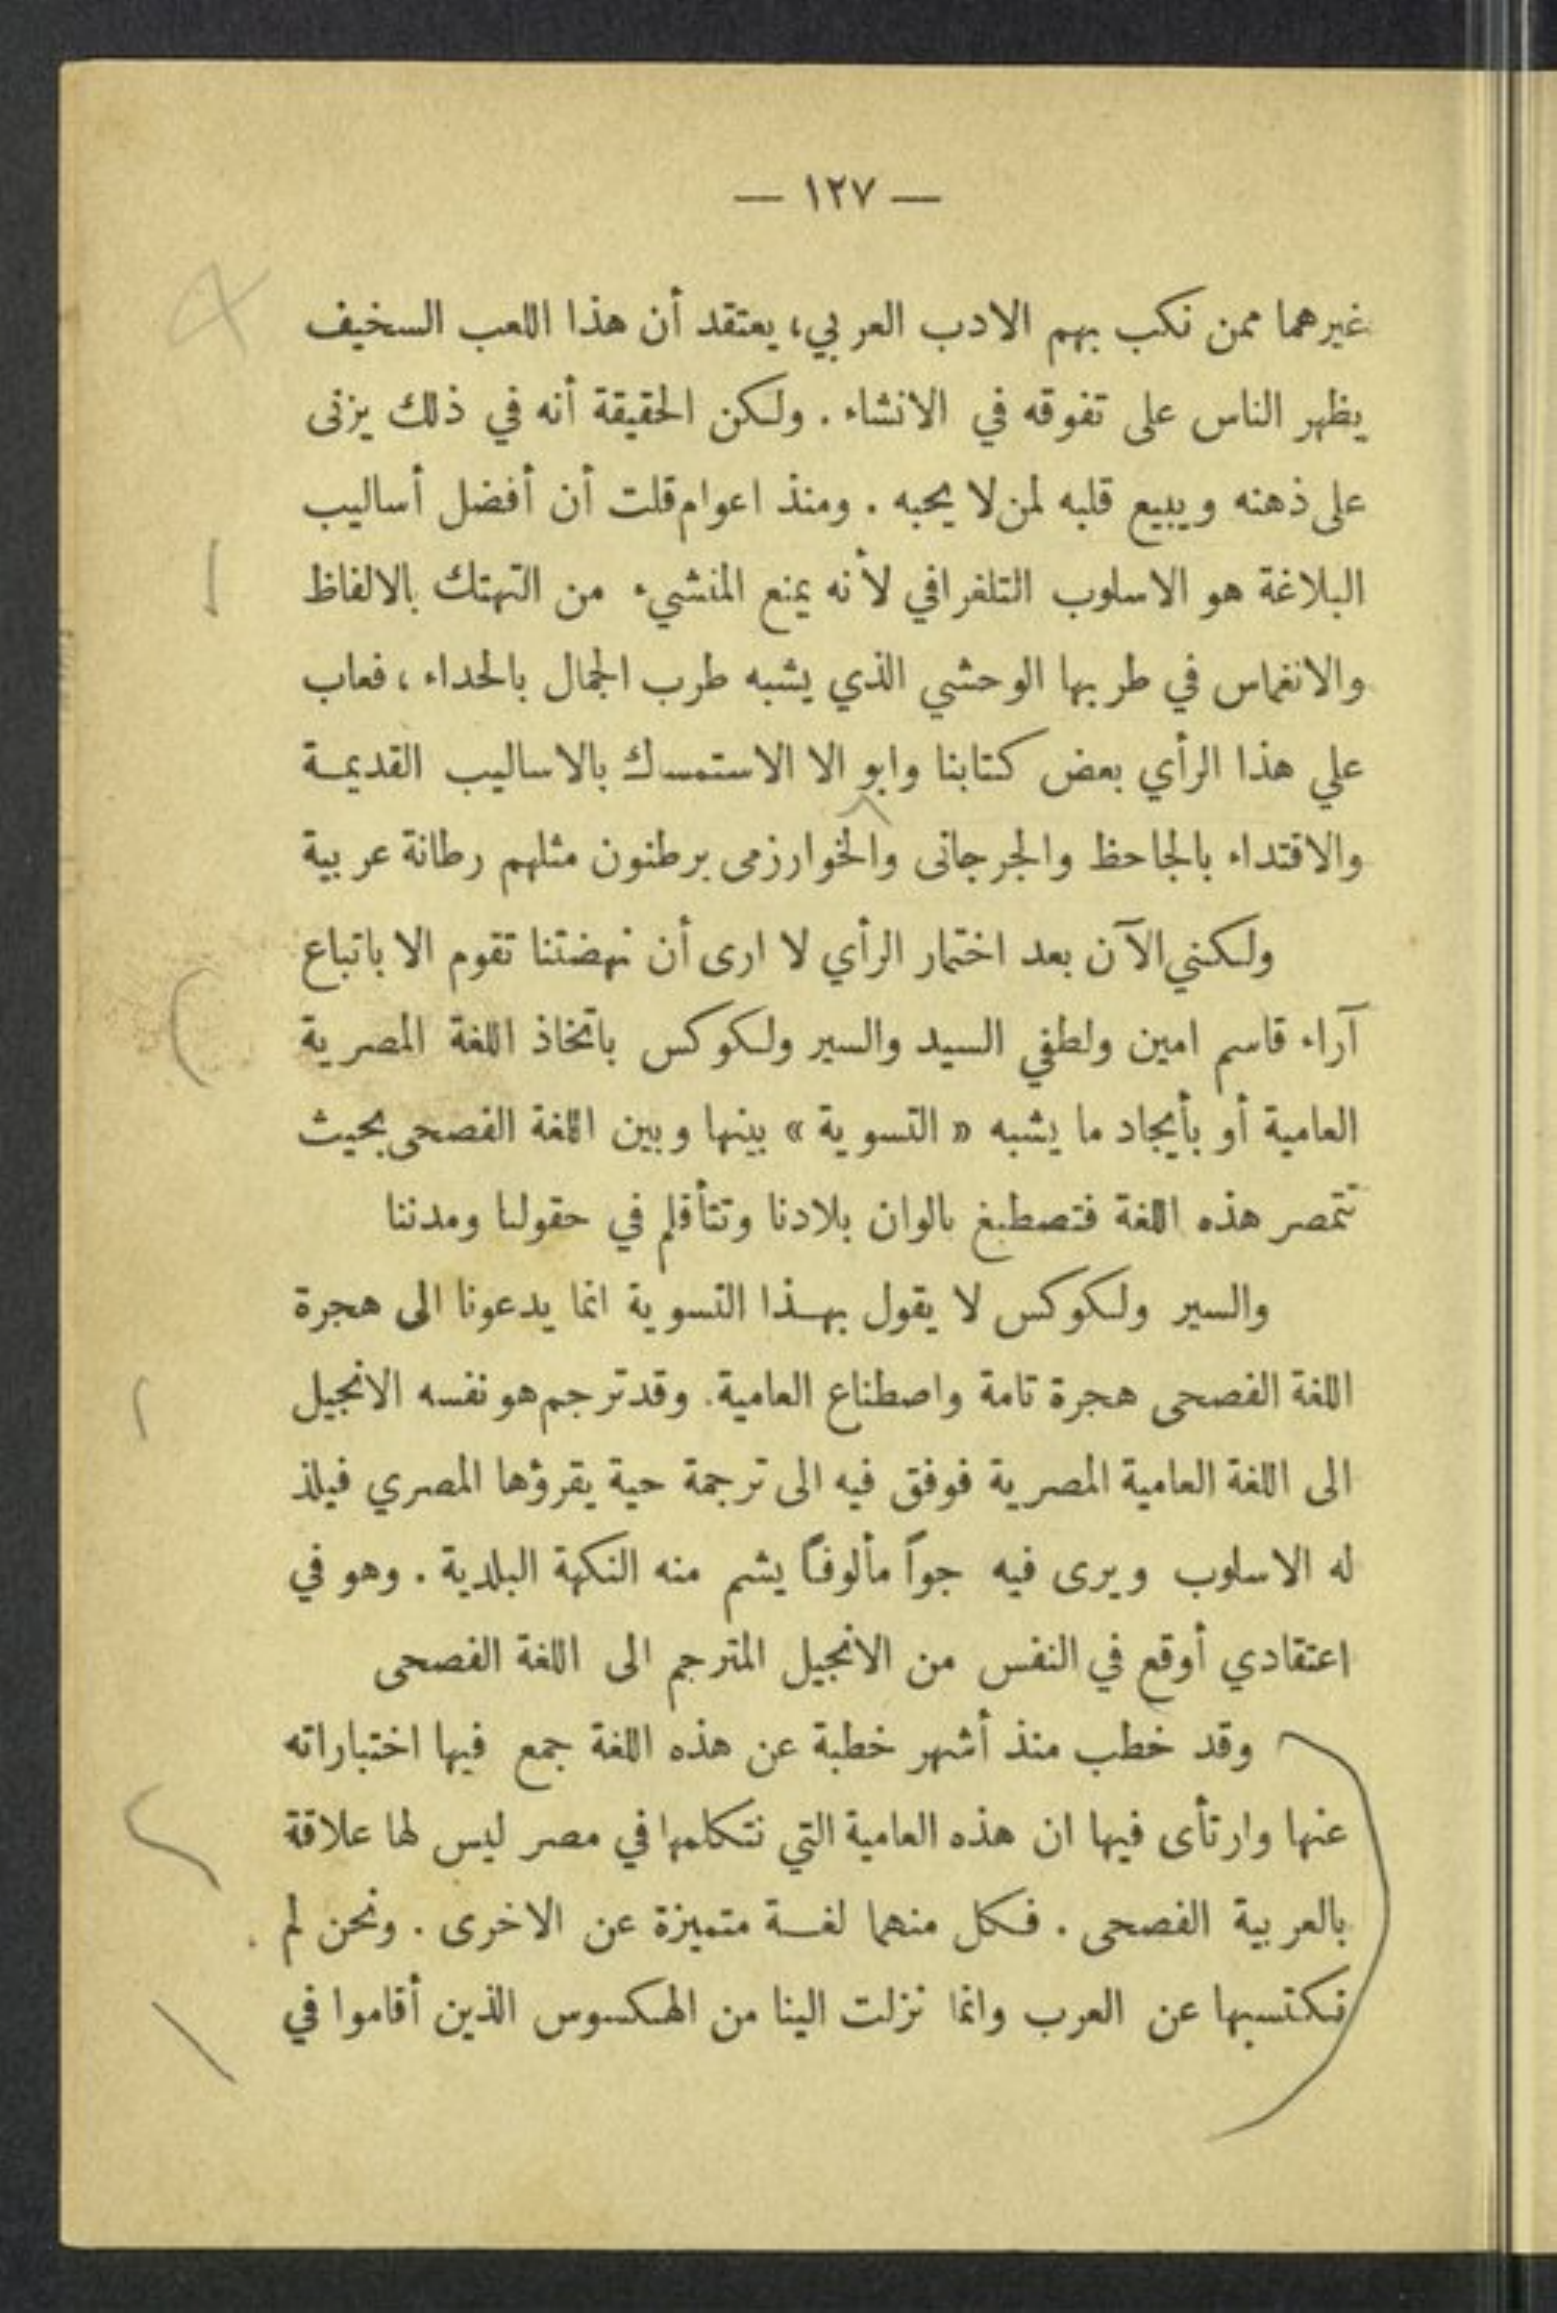 — ١٢٧ —
غيرهما ممن نكب بهم الادب العربي، يعتقد أن هذا اللعب السخيف
يظهر الناس على تفوقه في الانشاء . ولكن الحقيقة أنه في ذلك يزنى
على ذهنه ويبيع قلبه لمن لا يحبه . ومنذ اعوام قلت أن أفضل أساليب
البلاغة هو الاسلوب التلغرافي لأنه يمنع المنشيء من التهتك بالالفاظ
والانغماس في طربها الوحشي الذي يشبه طرب الجمال بالحداء ، فعاب
علي هذا الرأي بعض كتابنا وابو الا الاستمساك بالاساليب القديمة
والاقتداء بالجاحظ والجرجانى والخوارزمى يرطنون مثلهم رطانة عربية
ولكني الآن بعد اختمار الرأي لا ارى أن نهضتنا تقوم الا باتباع
آراء قاسم امين ولطفي السيد والسير ولكوكس باتخاذ اللغة المصرية
العامية أو بأيجاد ما يشبه « التسوية » بينها وبين اللغة الفصحى بحيث
تتمصر هذه اللغة فتصطبغ بالوان بلادنا وتتأقلم في حقولنا ومدننا
والسير ولكوكس لا يقول بهذا التسوية انما يدعونا الى هجرة
اللغة الفصحى هجرة تامة واصطناع العامية. وقد ترجم هو نفسه الانجيل
الى اللغة العامية المصرية فوفق فيه الى ترجمة حية يقرؤها المصري فيلذ
له الاسلوب ويرى فيه جواً مألوفاً يشم منه النكهة البلدية . وهو في
اعتقادي أوقع في النفس من الانجيل المترجم الى اللغة الفصحى
وقد خطب منذ أشهر خطبة عن هذه اللغة جمع فيها اختباراته
عنها وارتأى فيها ان هذه العامية التي نتكلمها في مصر ليس لها علاقة
بالعربية الفصحى . فكل منهما لغة متميزة عن الاخرى . ونحن لم
نكتسبها عن العرب وانما نزلت الينا من الهكسوس الذين أقاموا في